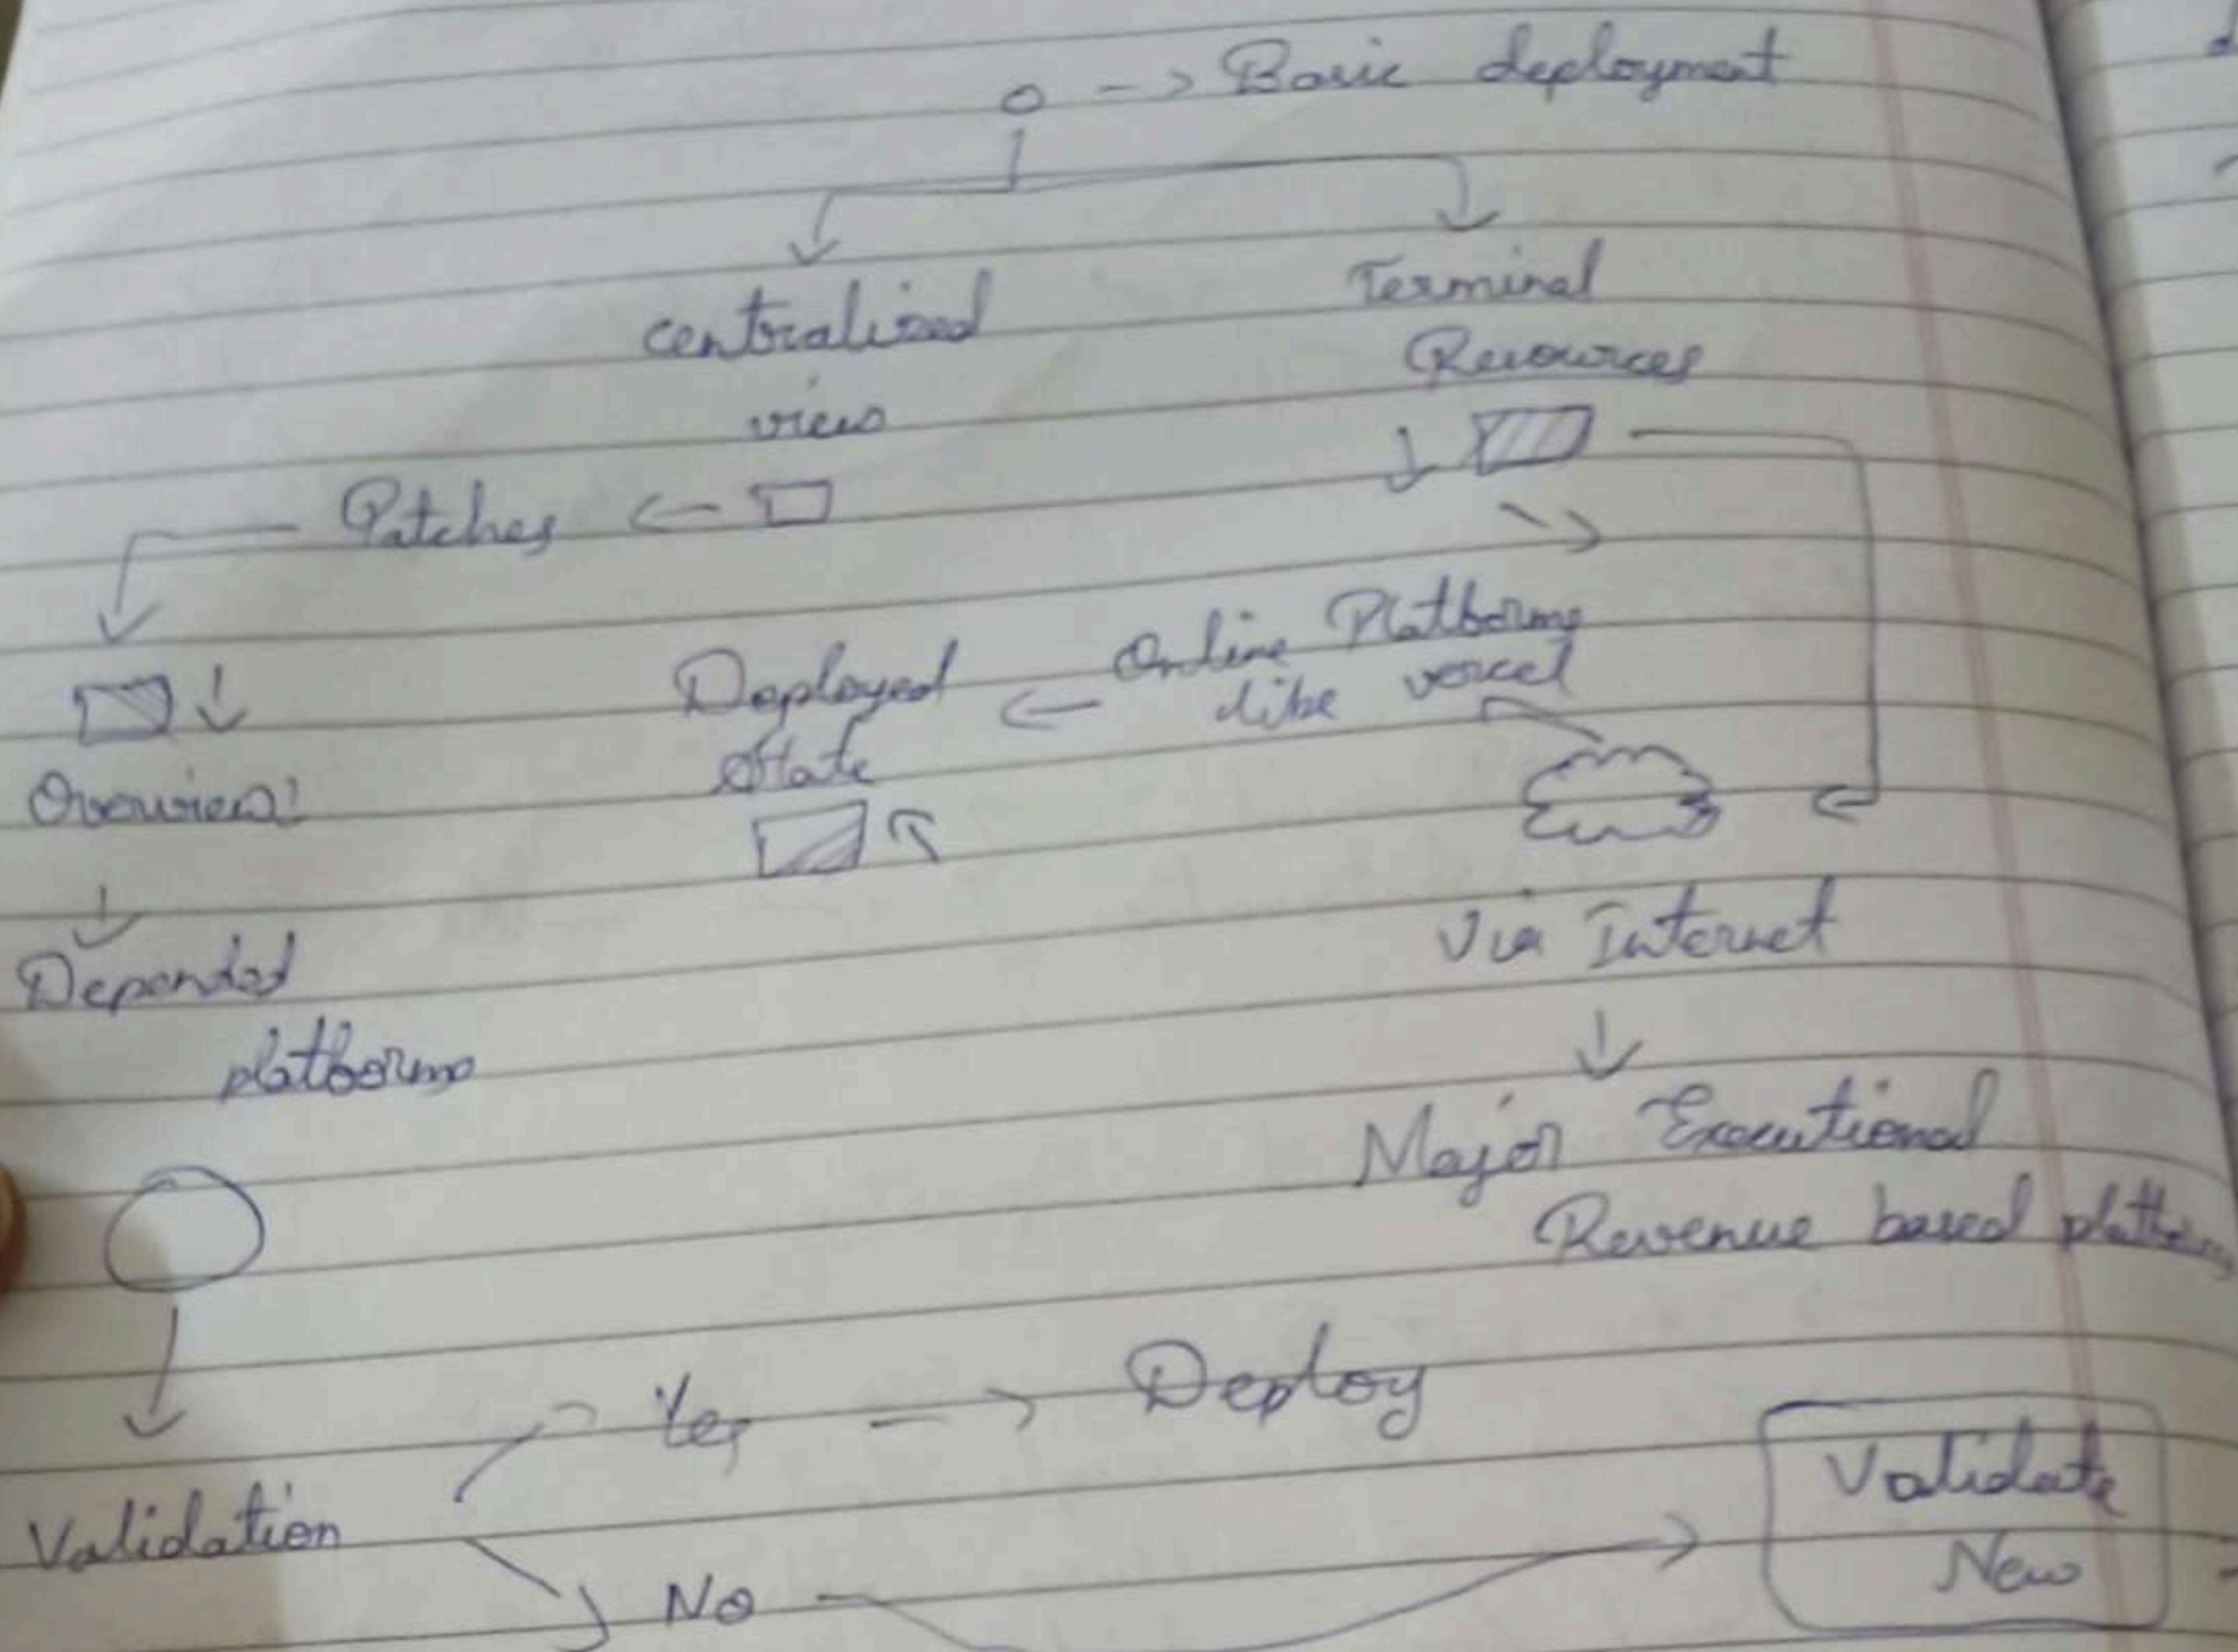 Basic deployment
centralized
view
Terminal
Resources
Patches
Overview!
Depended
platforms
Deployed
State
Online Platforms
like vercel
Via Internet
Major Executional
Revenue based platform
Validation
Yes
Deploy
No
Validate
New